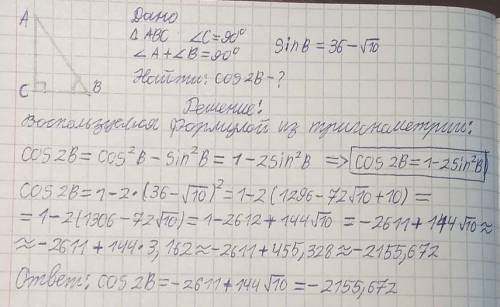 Дано
A
△ ABC ∠C=90°
∠A+∠B=90° sin B = 36-√10
Найти: cos 2B-?
C B
Решение:
Воспользуемся формулой из тригонометрии:
cos 2B = cos²B - sin²B = 1-2sin²B => cos 2B = 1-2sin²B
cos 2B = 1-2·(36-√10)² = 1-2(1296-72√10+10) =
= 1-2(1306-72√10) = 1-2612+144√10 = -2611+144√10 ≈
≈ -2611+144·3,162 ≈ -2611+455,328 ≈ -2155,672
Ответ: cos 2B = -2611+144√10 = -2155,672